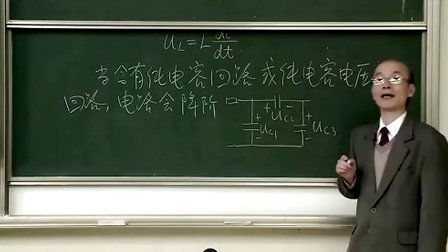 u_L = L di/dt
当含有纯电容回路或纯电容电压
回路，电路会降阶
+ u_C2 -
+ u_C1 -
+ u_C3 -